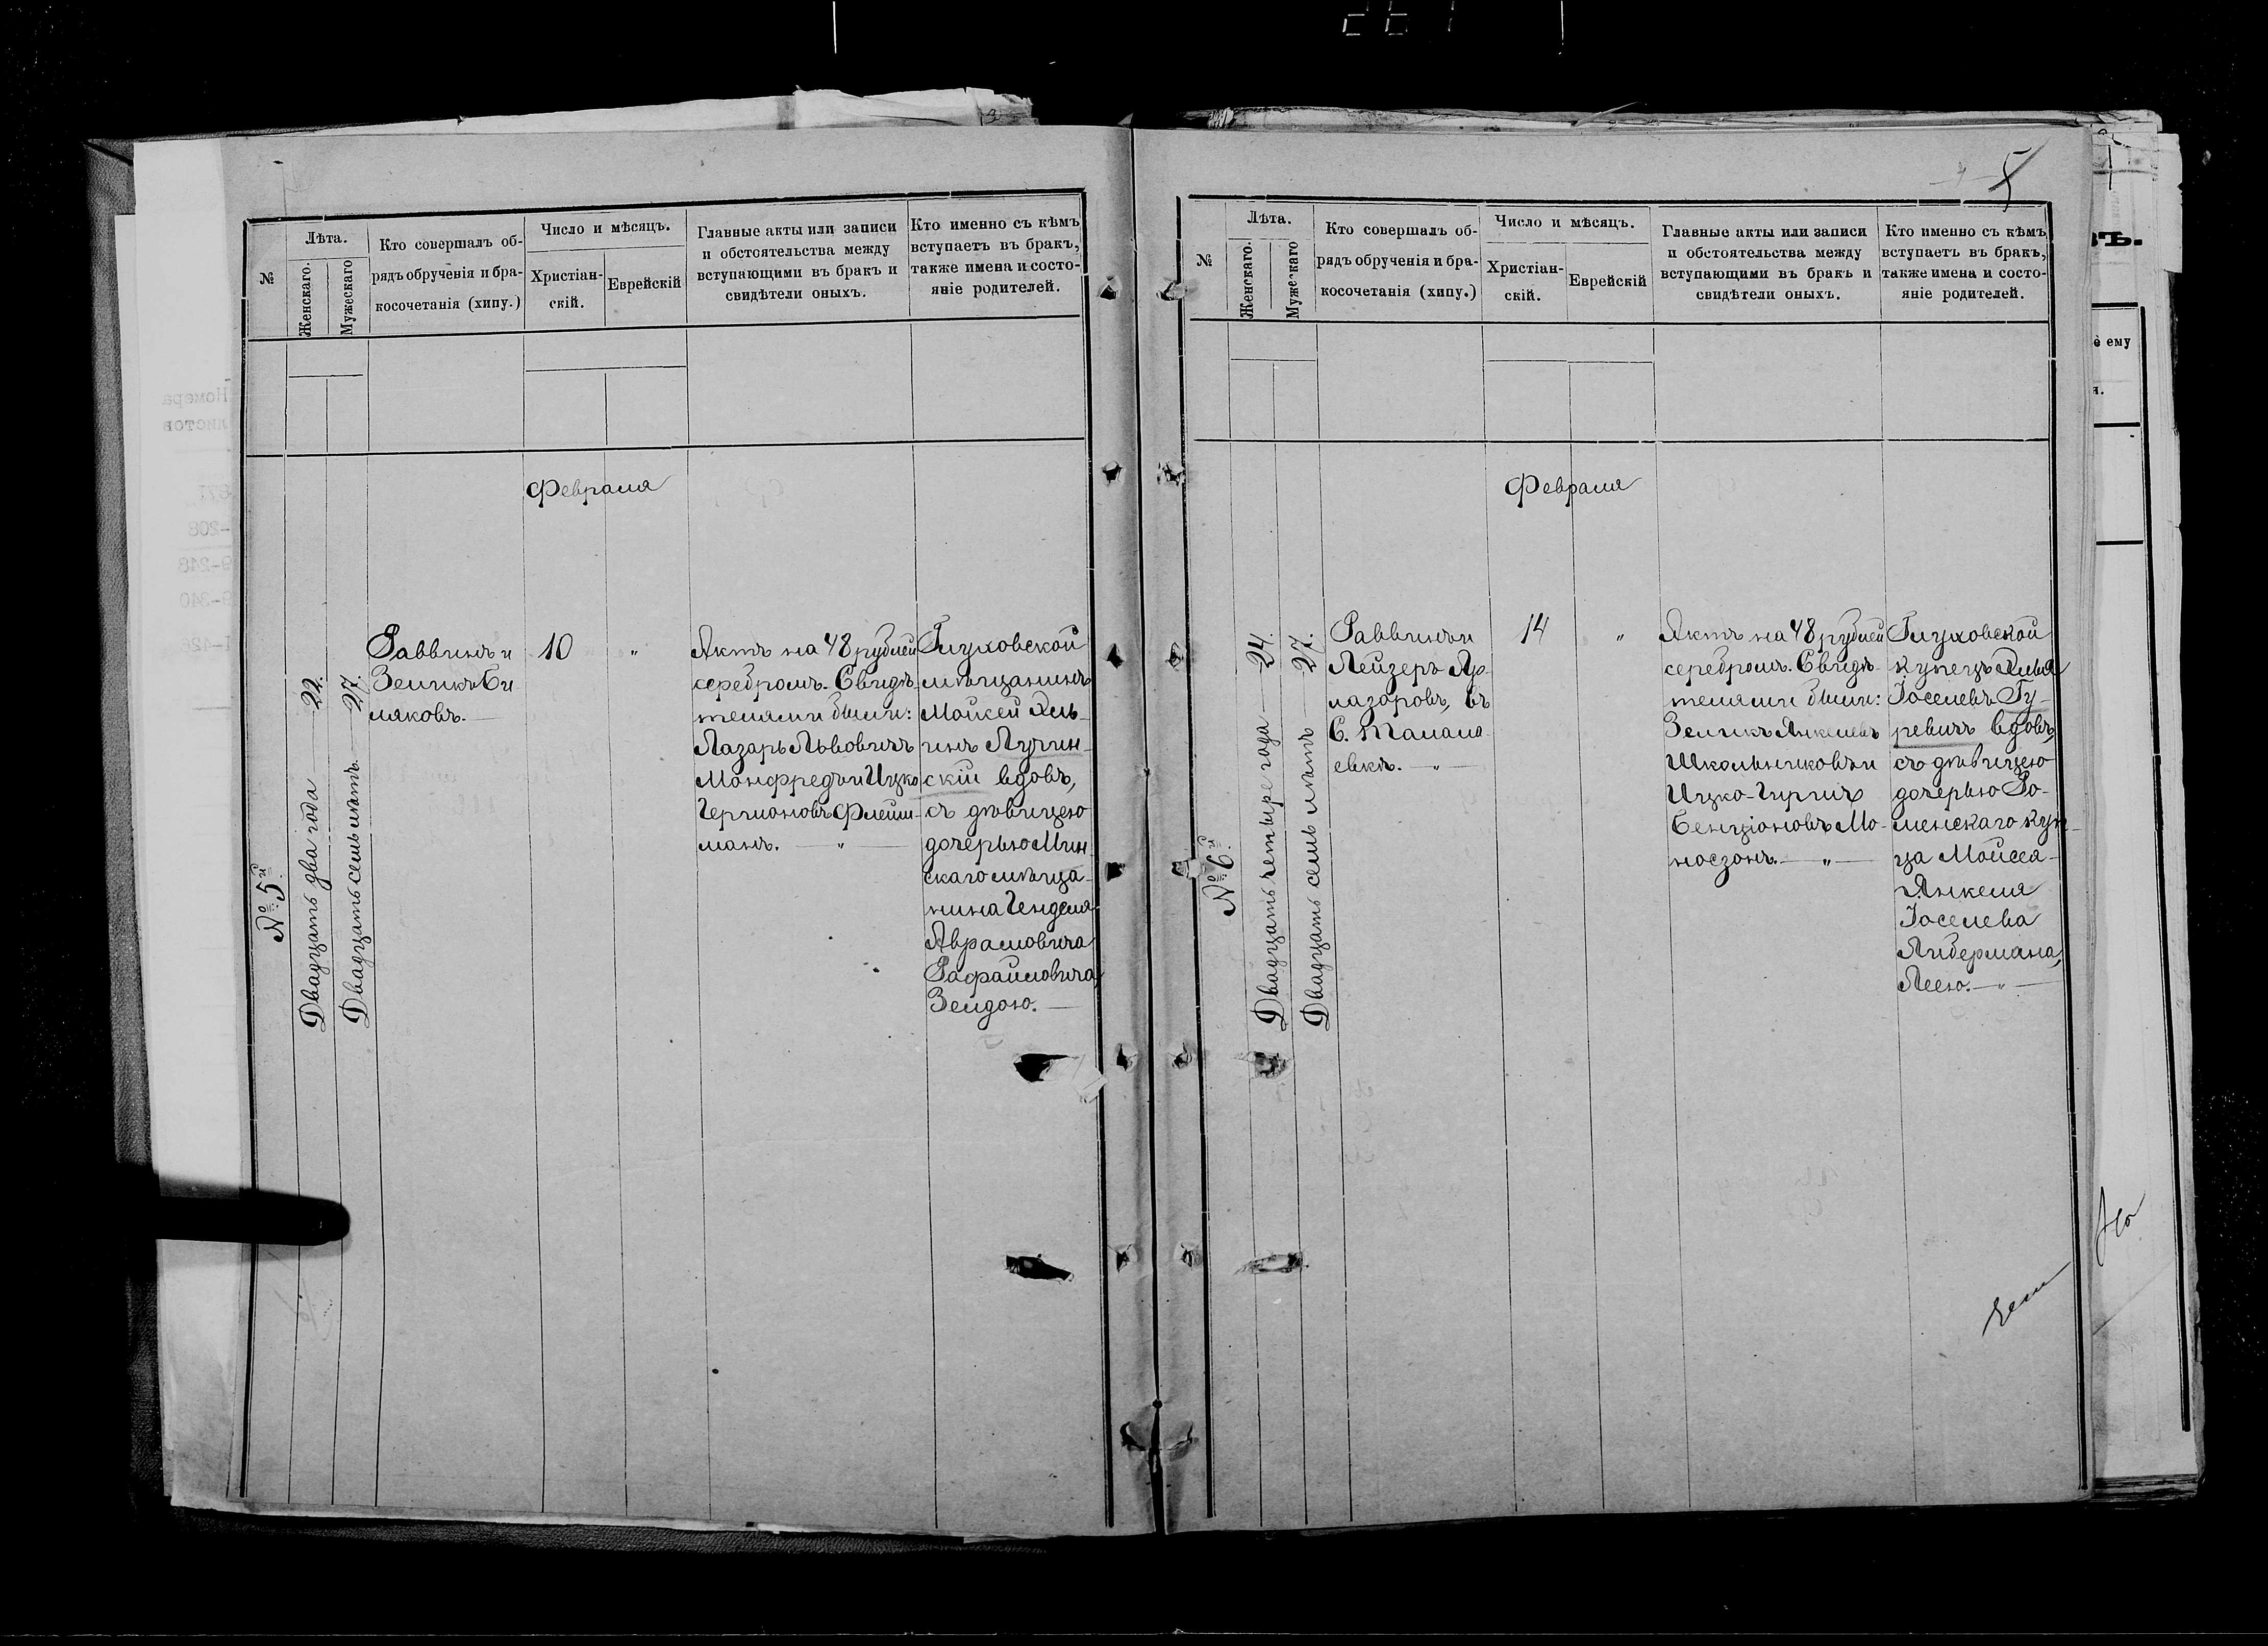 №
Лѣта.
Женскаго.
Мужескаго
Кто совершалъ об-
рядъ обрученія и бра-
косочетанія (хипу.)
Число и мѣсяцъ.
Христіан-
скій.
Еврейскій
Главные акты или записи
и обстоятельства между
вступающими въ бракъ и
свидѣтели оныхъ.
Кто именно съ кѣмъ
вступаетъ въ бракъ,
также имена и состо-
яніе родителей.
Февраля
№ 5й.
Двадцать два года 22.
Двадцать семь лѣтъ. 27.
Раввинъ и
Зеликъ Би
ляковъ.
10
"
Актъ на 48 рублей
серебромъ. Свидѣ-
телями были:
Лазарь Львовичъ
Монфредъ и Ицко
Гершоновъ Флейш-
манъ. "
Глуховской
мѣщанинъ
Мойсей Эль-
инъ Лучин-
скій вдовъ,
съ дѣвицею
дочерью Мин-
скаго мѣща-
нина Генделя
Аврамовича
Рафаиловича,
Зелдою.
5
№
Лѣта.
Женскаго.
Мужескаго
Кто совершалъ об-
рядъ обрученія и бра-
косочетанія (хипу.)
Число и мѣсяцъ.
Христіан-
скій.
Еврейскій
Главные акты или записи
и обстоятельства между
вступающими въ бракъ и
свидѣтели оныхъ.
Кто именно съ кѣмъ
вступаетъ въ бракъ,
также имена и состо-
яніе родителей.
Февраля
№ 6й.
Двадцать четыре года 24.
Двадцать семь лѣтъ 27.
Раввинъ и
Лейзеръ Ар-
лазоровъ, въ
С. Талала-
евкѣ. "
14
"
Актъ на 48 рублей
серебромъ. Свидѣ-
телями были:
Зеликъ Янкелевъ
Школьниковъ и
Ицко-Гиршъ
Бенціоновъ Мо-
носзонъ. "
Глуховской
купецъ Элья
Іоселевъ Гу-
ревичъ вдовъ,
съ дѣвицею
дочерью Ро-
менскаго куп-
ца Мойсея-
Янкеля
Іоселева
Либермана,
Леею. "
ему